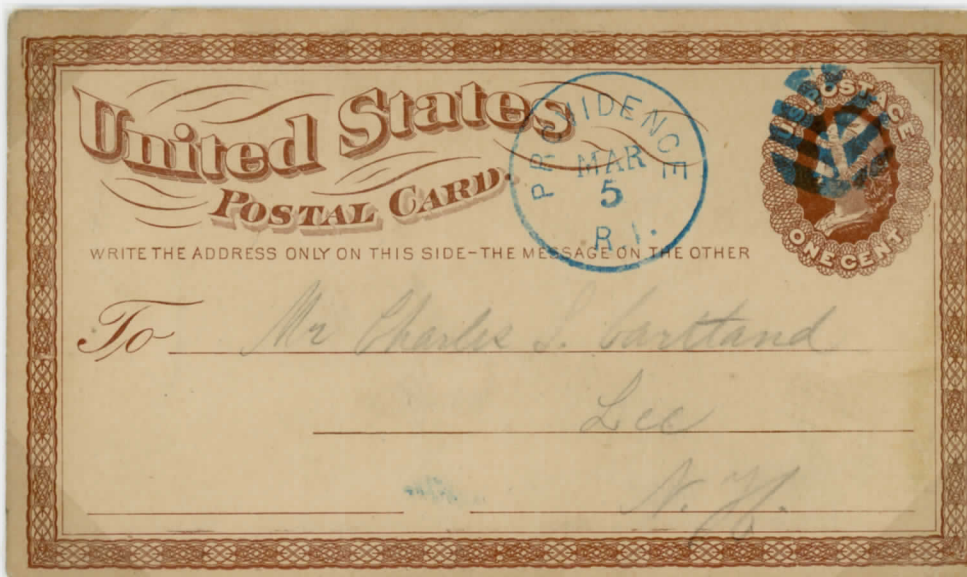 United States
POSTAL CARD.
PROVIDENCE
MAR
5
R.I.
POSTAGE
ONE CENT
WRITE THE ADDRESS ONLY ON THIS SIDE-THE MESSAGE ON THE OTHER
To Mr Charles S. Cartland
Lee
N.H.